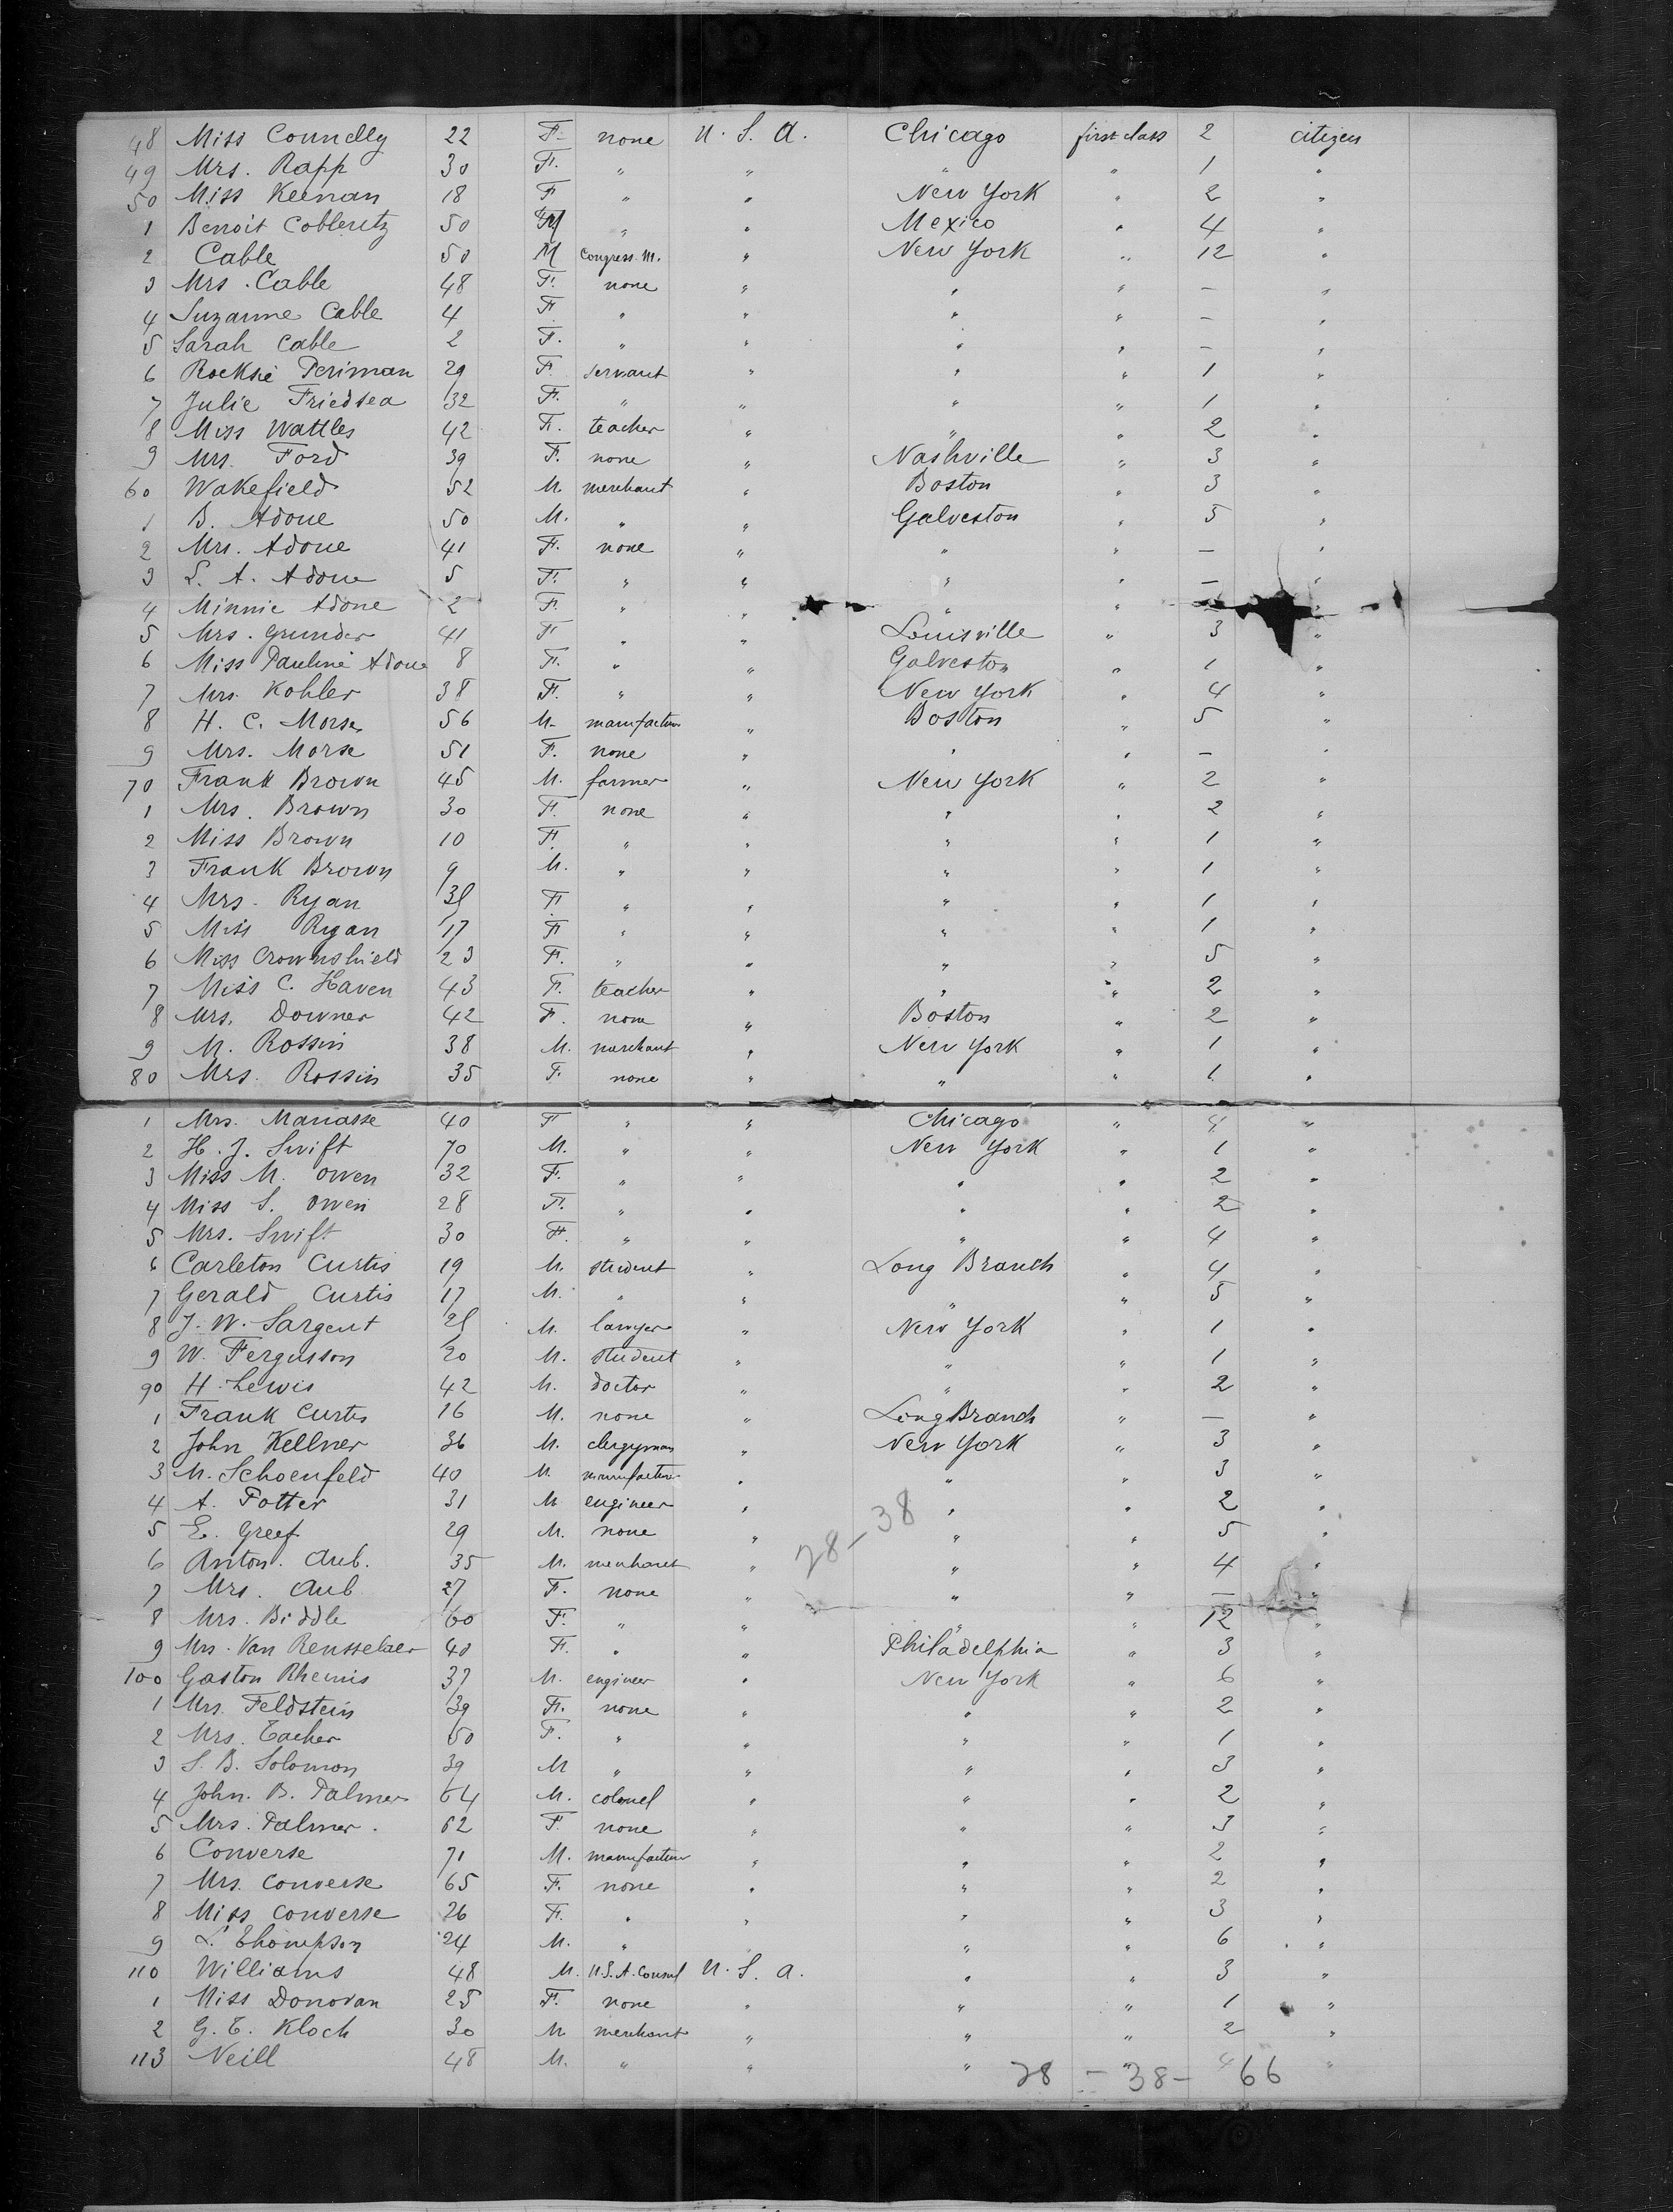 48 Miss Connelly 22 F. none U. S. A. Chicago first class 2 citizen
49 Mrs. Rapp 30 F. " " " " 1 "
50 Miss Keenan 18 F " " New York " 2 "
1 Benoit Coblentz 50 M " " Mexico " 4 "
2 Cable 50 M Congress. M. " New York " 12 "
3 Mrs. Cable 48 F. none " " " — "
4 Suzanne Cable 4 F " " " " — "
5 Sarah Cable 2 F. " " " " — "
6 Rocksie Periman 29 F. servant " " " 1 "
7 Julie Friedsea 32 F. " " " " 1 "
8 Miss Wattles 42 F. teacher " " " 2 "
9 Mrs. Ford 39 F. none " Nashville " 3 "
60 Wakefield 52 M. merchant " Boston " 3 "
1 B. Adoue 50 M. " " Galveston " 5 "
2 Mrs. Adoue 41 F. none " " " — "
3 L. A. Adoue 5 F. " " " " — "
4 Minnie Adoue 2 F. " " " " — "
5 Mrs. Grunder 41 F " " Louisville " 3 "
6 Miss Pauline Adoue 8 F. " " Galveston " 1 "
7 Mrs. Kohler 38 F. " " New York " 4 "
8 H. C. Morse 56 M. manufactur " Boston " 5 "
9 Mrs. Morse 51 F. none " " " — "
70 Frank Brown 45 M. farmer " New York " 2 "
1 Mrs. Brown 30 F. none " " " 2 "
2 Miss Brown 10 F. " " " " 1 "
3 Frank Brown 9 M. " " " " 1 "
4 Mrs. Ryan 38 F " " " " 1 "
5 Miss Ryan 17 F " " " " 1 "
6 Miss Crownshield 23 F. " " " " 5 "
7 Miss C. Haven 43 F. teacher " " " 2 "
8 Mrs. Downer 42 F. none " Boston " 2 "
9 M. Rossin 38 M. merchant " New York " 1 "
80 Mrs. Rossin 35 F. none " " " 1 "
1 Mrs. Manasse 40 F " " Chicago " 4 "
2 H. J. Swift 70 M. " " New York " 1 "
3 Miss M. Owen 32 F. " " " " 2 "
4 Miss S. Owen 28 F. " " " " 2 "
5 Mrs. Swift 30 F. " " " " 4 "
6 Carleton Curtis 19 M. student " Long Branch " 4 "
7 Gerald Curtis 17 M. " " " " 5 "
8 J. W. Sargent M. lawyer " New York " 1 "
9 W. Fergusson 20 M. student " " " 1 "
90 H. Lewis 42 M. doctor " " " 2 "
1 Frank Curtis 16 M. none " Long Branch " — "
2 John Kellner 36 M. clergyman " New York " 3 "
3 M. Schoenfeld 40 M. manufactur " " " 3 "
4 A. Potter 31 M engineer " " " 2 "
5 E. Greef 29 M. none " " " 5 "
6 Anton. Aub. 35 M. merchant " " " 4 "
28 – 38
7 Mrs. Aub 27 F. none " " " — "
8 Mrs. Biddle 60 F. " " " " 12 "
9 Mrs. Van Rensselaer 40 F. " " Philadelphia " 3 "
100 Gaston Rhemis 37 M. engineer " New York " 6 "
1 Mrs. Feldstein 39 F. none " " " 2 "
2 Mrs. 50 F. " " " " 1 "
3 S. B. Solomon 39 M " " " " 3 "
4 John. B. Palmer 64 M. colonel " " " 2 "
5 Mrs. Palmer. 62 F. none " " " 3 "
6 Converse 71 M. manufactur " " " 2 "
7 Mrs. Converse 65 F. none " " " 2 "
8 Miss Converse 26 F. " " " " 3 "
9 L. Thompson 24 M. " " " 6 "
110 Williams 48 M. U.S.A. Consul U. S. A. " " 3 "
1 Miss Donovan 25 F. none " " " 1 "
2 G. T. Kloch 30 M merchant " " " 2 "
113 Neill 48 M. " " " " 4 "
28 – 38 – 66